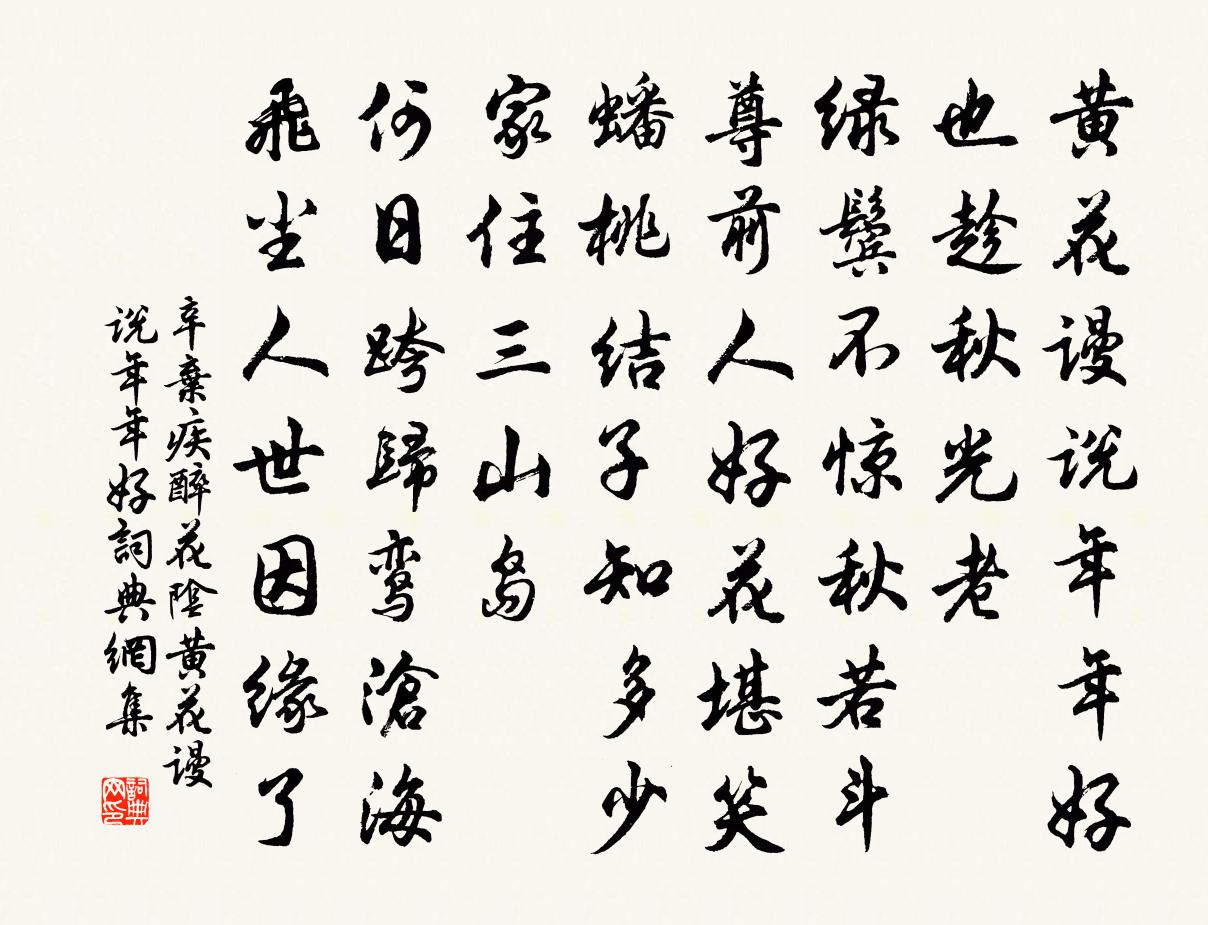 黄花谩说年年好
也趁秋光老
绿鬓不惊秋若斗
尊前人好花堪笑
蟠桃结子知多少
家住三山岛
何日跨歸鸾滄海
飛尘人世因缘了
辛棄疾醉花陰黄花谩
说年年好詞典網集
詞典网印